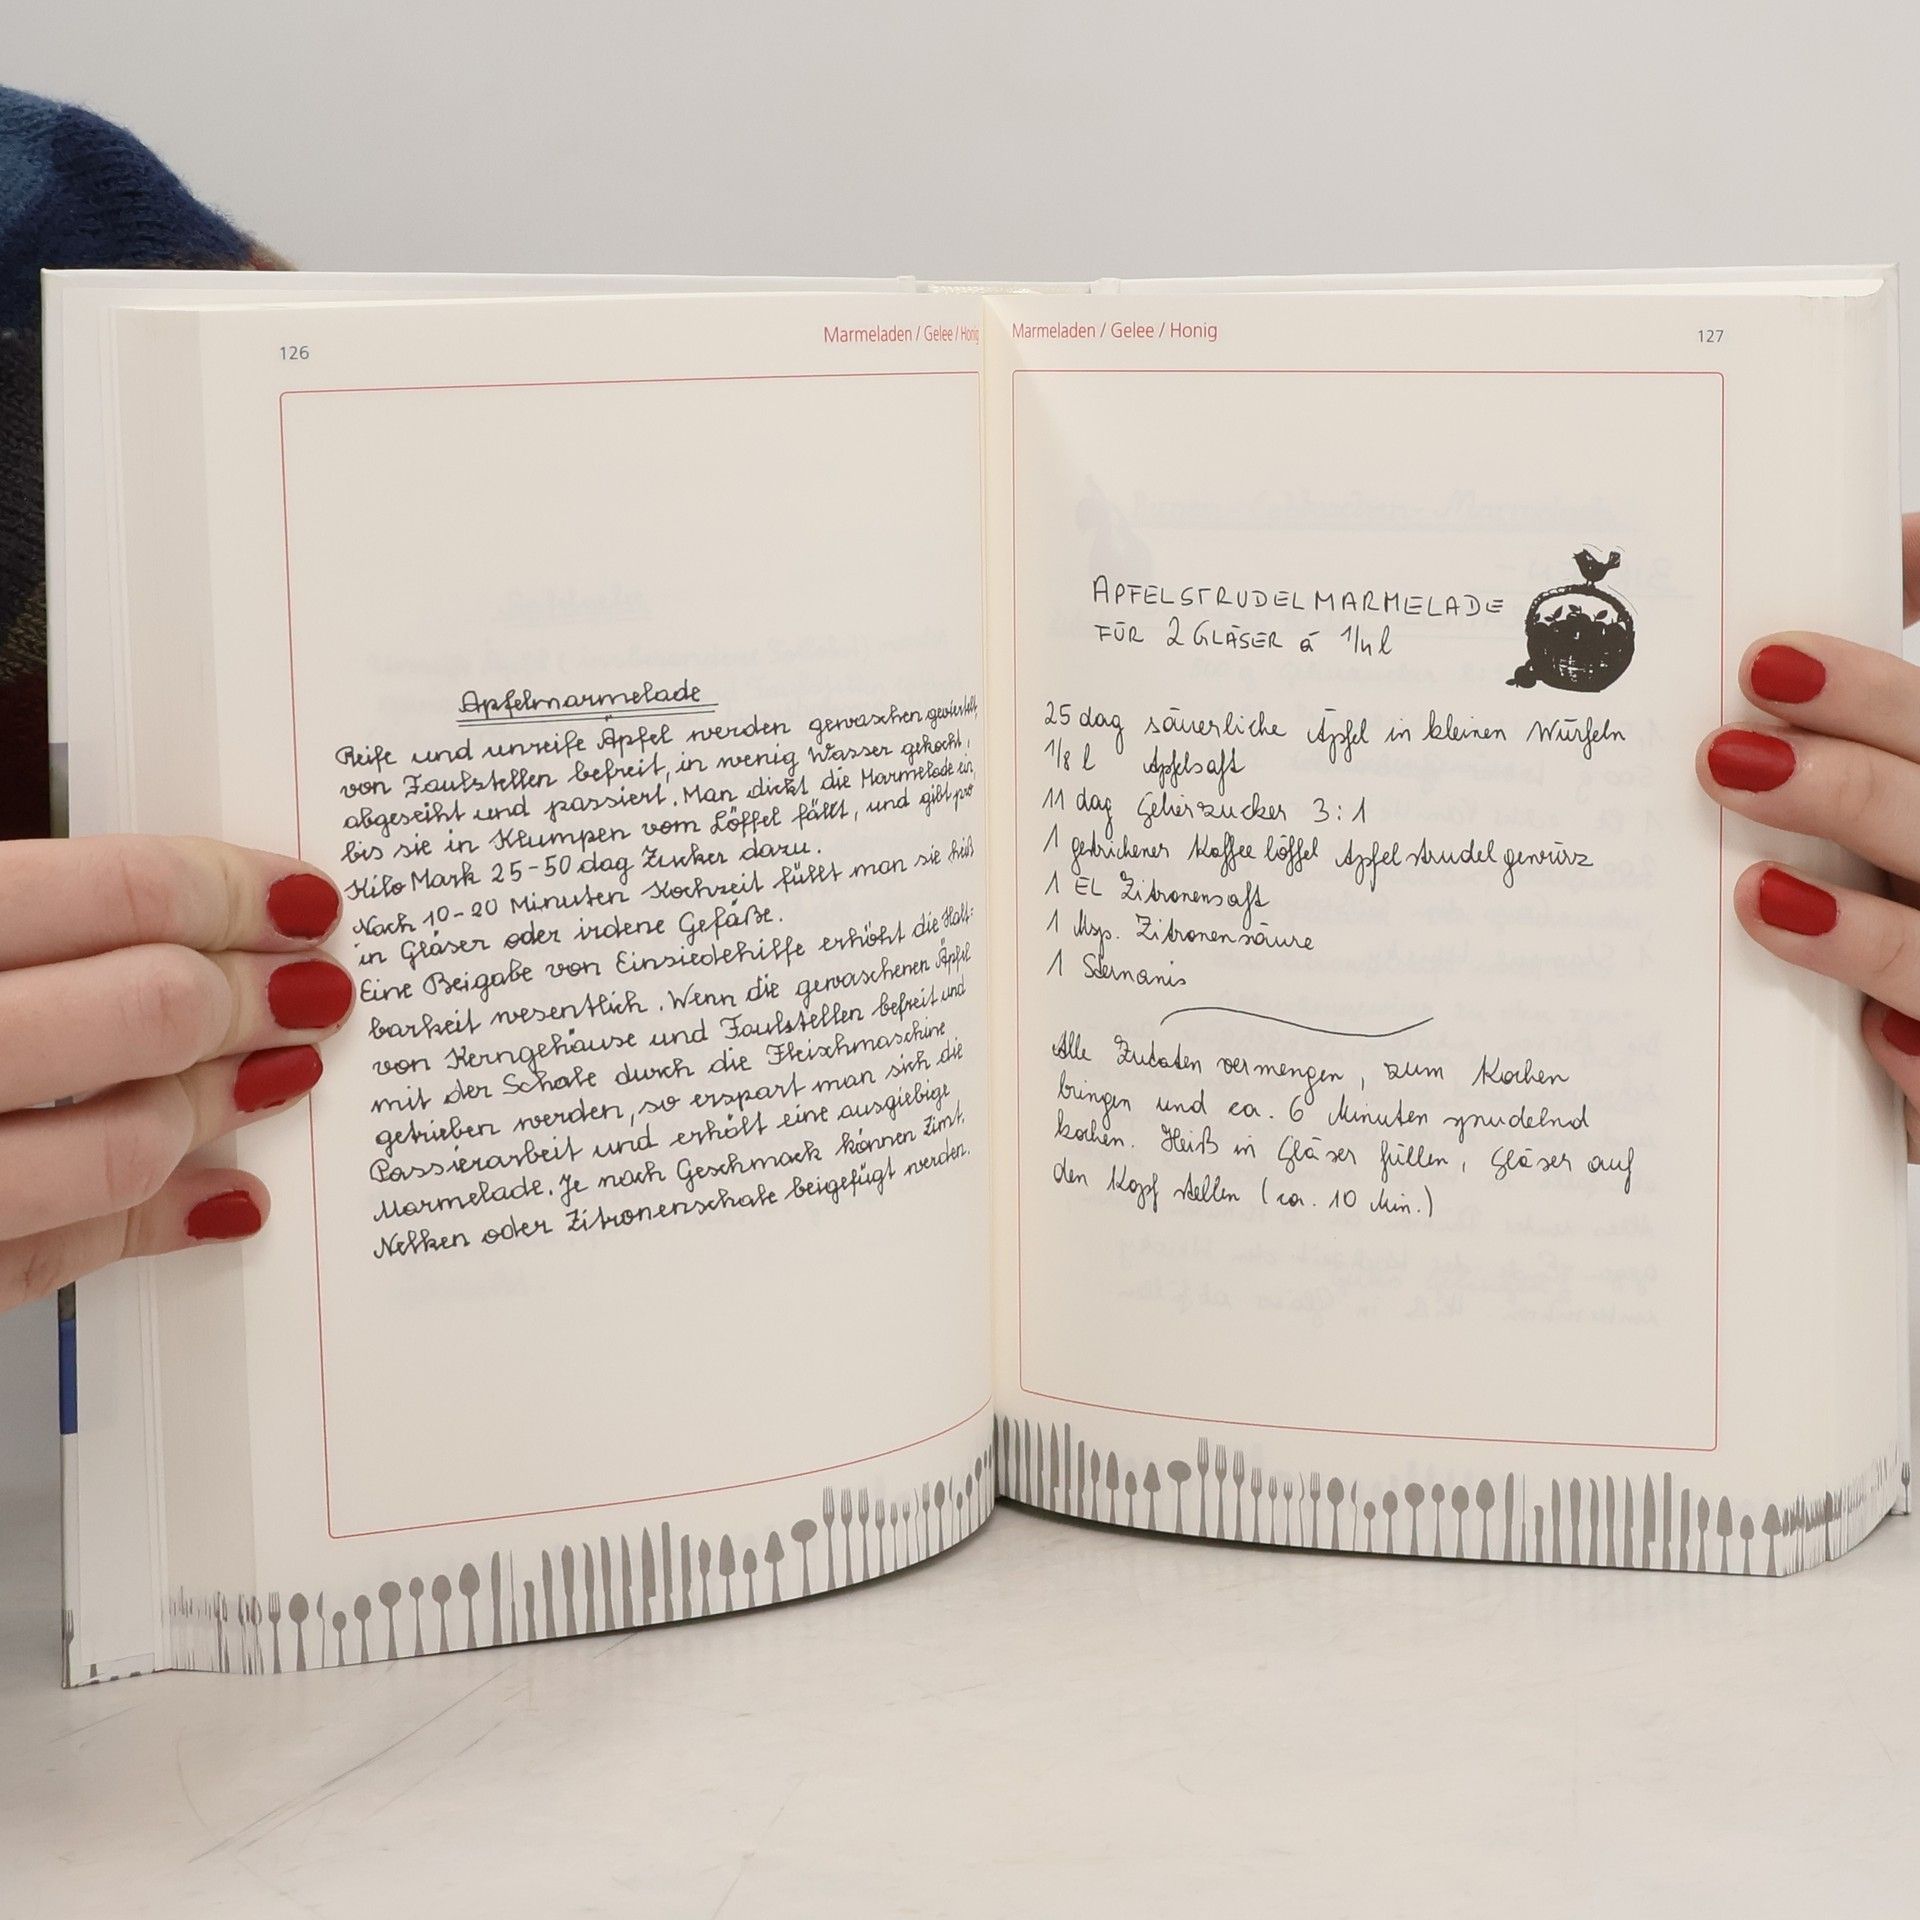 126
Marmeladen / Gelee / Honig
Apfelmarmelade
Reife und unreife Äpfel werden gewaschen, geviertelt,
von Faulstellen befreit, in wenig Wasser gekocht,
abgeseiht und passiert. Man dickt die Marmelade ein,
bis sie in Klumpen vom Löffel fällt, und gibt pro
Kilo Mark 25-50 dag Zucker dazu.
Nach 10-20 Minuten Kochzeit füllt man sie heiß
in Gläser oder irdene Gefäße.
Eine Beigabe von Einsiedehilfe erhöht die Halt-
barkeit wesentlich. Wenn die gewaschenen Äpfel
von Kerngehäuse und Faulstellen befreit und
mit der Schale durch die Fleischmaschine
getrieben werden, so erspart man sich die
Passierarbeit und erhält eine ausgiebige
Marmelade. Je nach Geschmack können Zimt,
Nelken oder Zitronenschale beigefügt werden.
Marmeladen / Gelee / Honig
127
APFELSTRUDELMARMELADE
FÜR 2 GLÄSER á 1/4 l
25 dag säuerliche Äpfel in kleinen Würfeln
1/8 l Apfelsaft
11 dag Gelierzucker 3:1
1 gestrichener Kaffeelöffel Apfelstrudelgewürz
1 EL Zitronensaft
1 Msp. Zitronensäure
1 Sternanis
Alle Zutaten vermengen, zum Kochen
bringen und ca. 6 Minuten sprudelnd
kochen. Heiß in Gläser füllen, Gläser auf
den Kopf stellen (ca. 10 Min.)